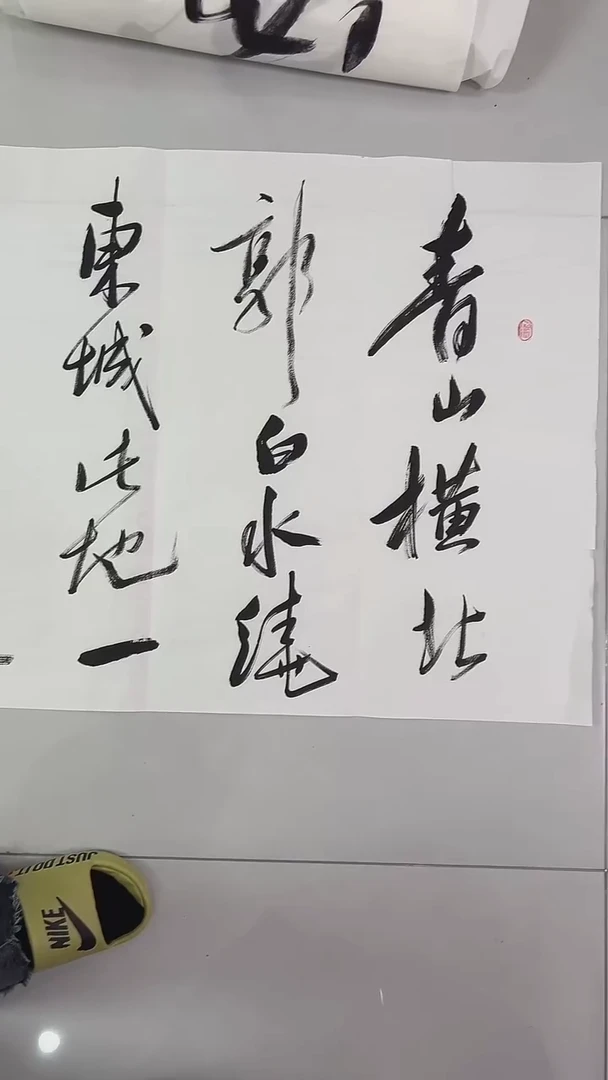 青山橫北
郭白水繞
東城此地一
JUST DO IT.
NIKE